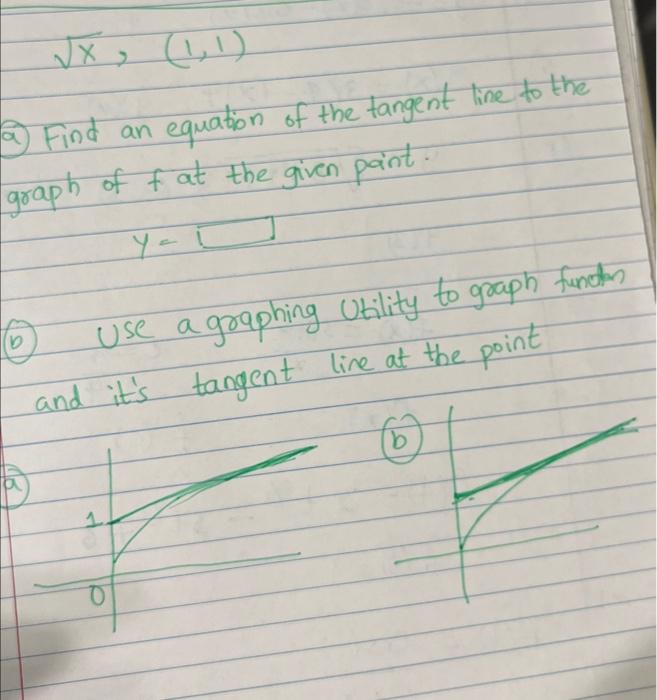 √x, (1,1)
ⓐ Find an equation of the tangent line to the
graph of f at the given point.
y =
ⓑ Use a graphing Utility to graph
and it's tangent line at the point
ⓐ
ⓑ
1
0